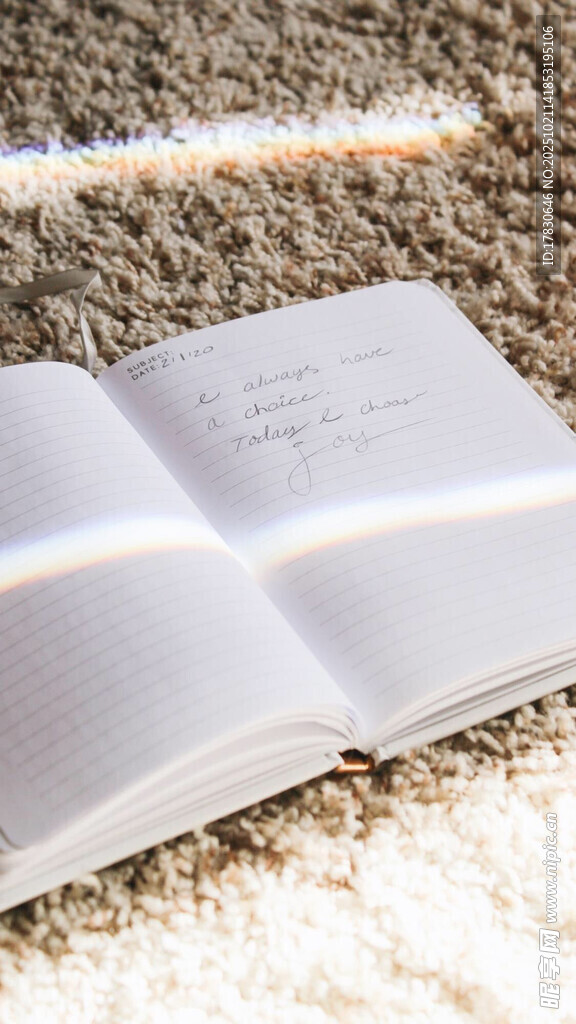 SUBJECT:
DATE: 2/1/20
I always have
a choice.
Today I choose
joy
ID:17830646 NO:20251021141853195106
昵享网 www.nipic.cn